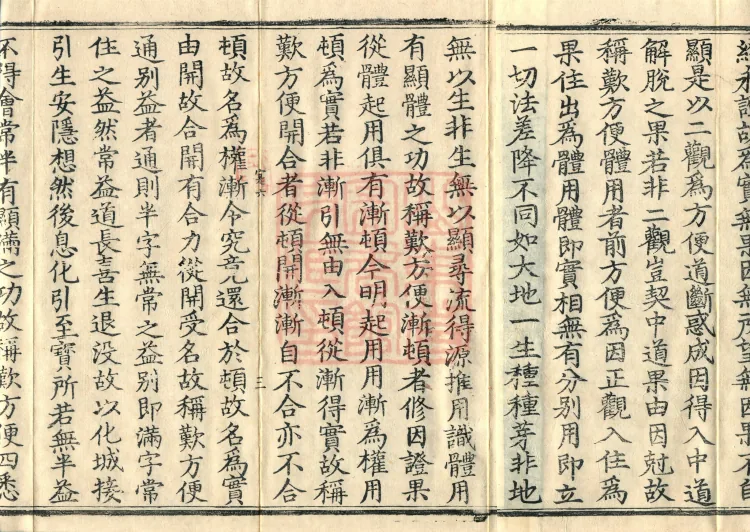 顯是以二觀爲方便道斷惑成因得入中道
解脫之果若非二觀豈契中道果由因尅故
稱歎方便體用者前方便爲因正觀入住爲
果住出爲體用體即實相無有分別用即立
一切法差降不同如大地一生種種芽非地
無以生非生無以顯尋流得源推用識體用
有顯體之功故稱歎方便漸頓者修因證果
從體起用俱有漸頓今明起用用漸爲權用
頓爲實若非漸引無由入頓從漸得實故稱
歎方便開合者從頓開漸漸自不合亦不合
頓故名爲權漸令究竟還合於頓故名爲實
由開故合開有合力從開受名故稱歎方便
通別益者通則半字無常之益別即滿字常
住之益然常益道長喜生退没故以化城接
引生安隱想然後息化引至寶所若無半益
不得會常半有顯滿之功故稱歎方便四悉
三